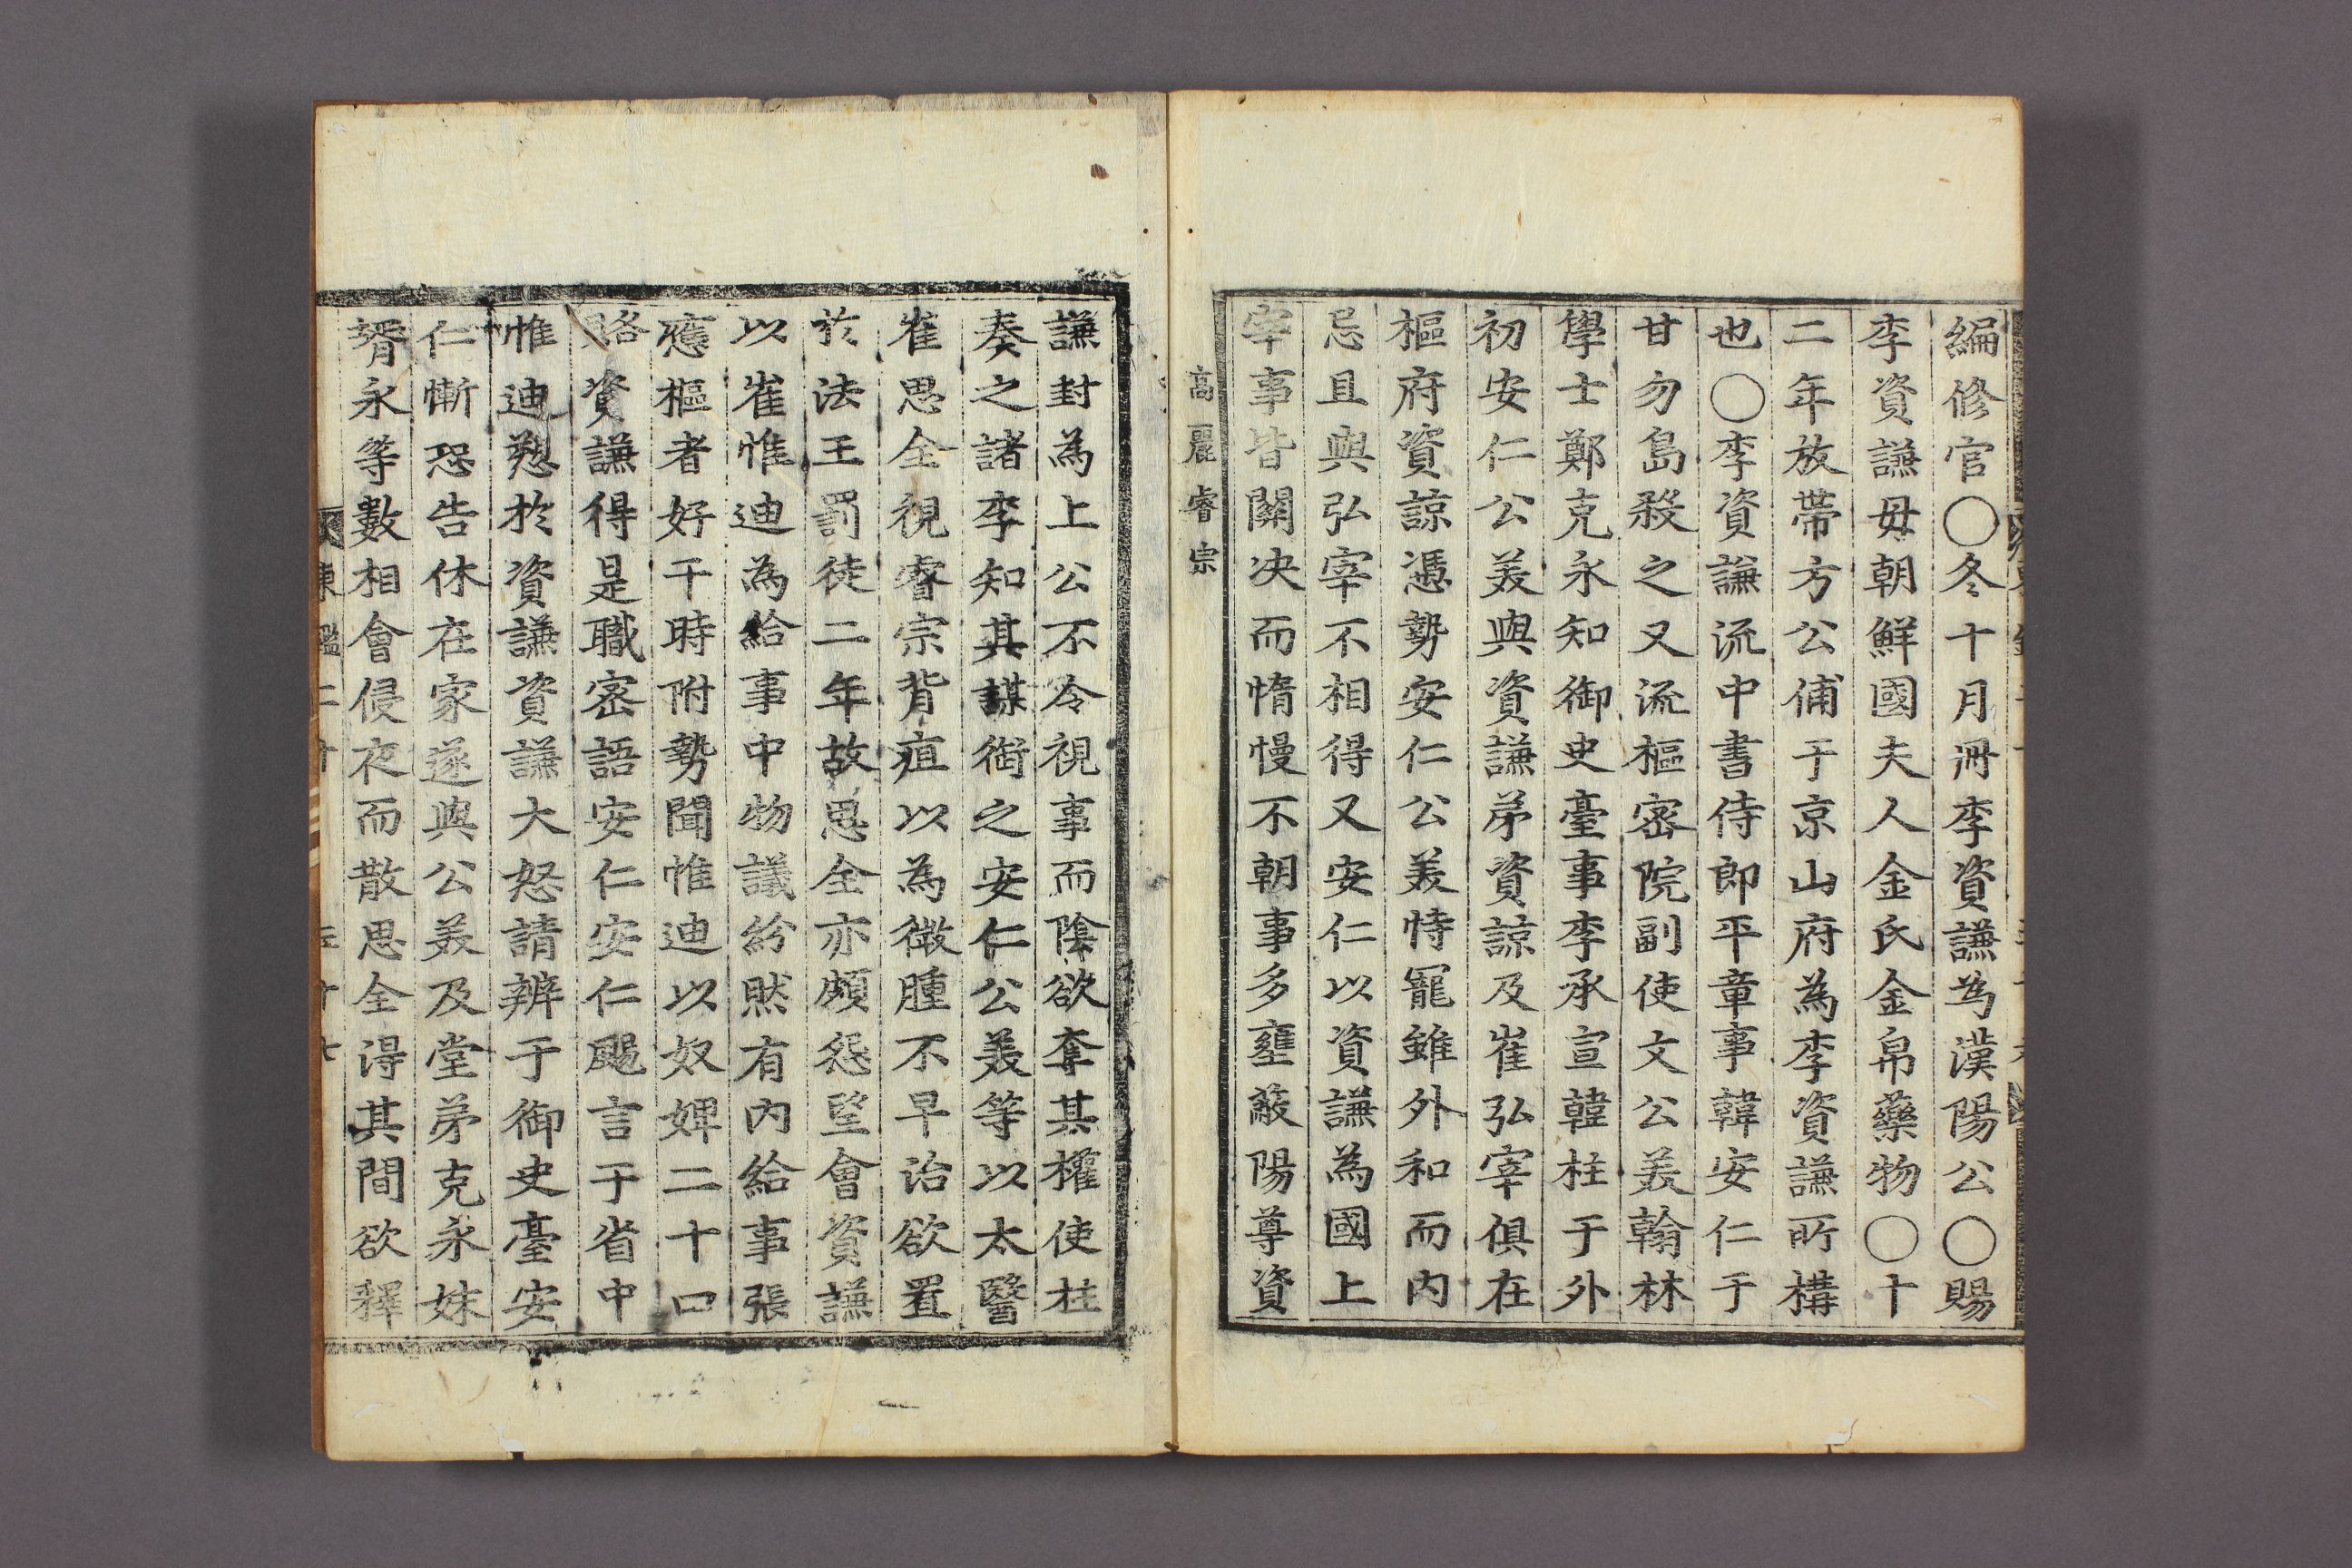 編修官〇冬十月冊李資謙為漢陽公〇賜
李資謙母朝鮮國夫人金氏金帛藥物〇十
二年放帶方公俌于京山府為李資謙所構
也〇李資謙流中書侍郎平章事韓安仁于
甘勿島殺之又流樞密院副使文公美翰林
學士鄭克永知御史臺事李永宣韓柱于外
初安仁公美與資謙弟資諒及崔弘宰俱在
樞府資諒憑勢安仁公美恃寵雖外和而內
忌且與弘宰不相得又安仁以資謙為國上
宰事皆關決而惰慢不朝事多壅蔽陽尊資
高麗睿宗
謙封為上公不令視事而陰欲奪其權使柱
奏之諸李知其謀銜之安仁公美等以太醫
崔思全視睿宗背疽以為微腫不早治欲置
於法王罰徒二年故思全亦頗怨望會資謙
以崔惟迪為給事中物議紛然有內給事張
應樞者好干時附勢聞惟迪以奴婢二十口
賂資謙得是職密語安仁安仁颺言于省中
惟迪愬於資謙資謙大怒請辨于御史臺安
仁慚恐告休在家遂與公美及堂弟克永妹
壻永等數相會侵夜而散思全得其間欲釋
東鑑二十